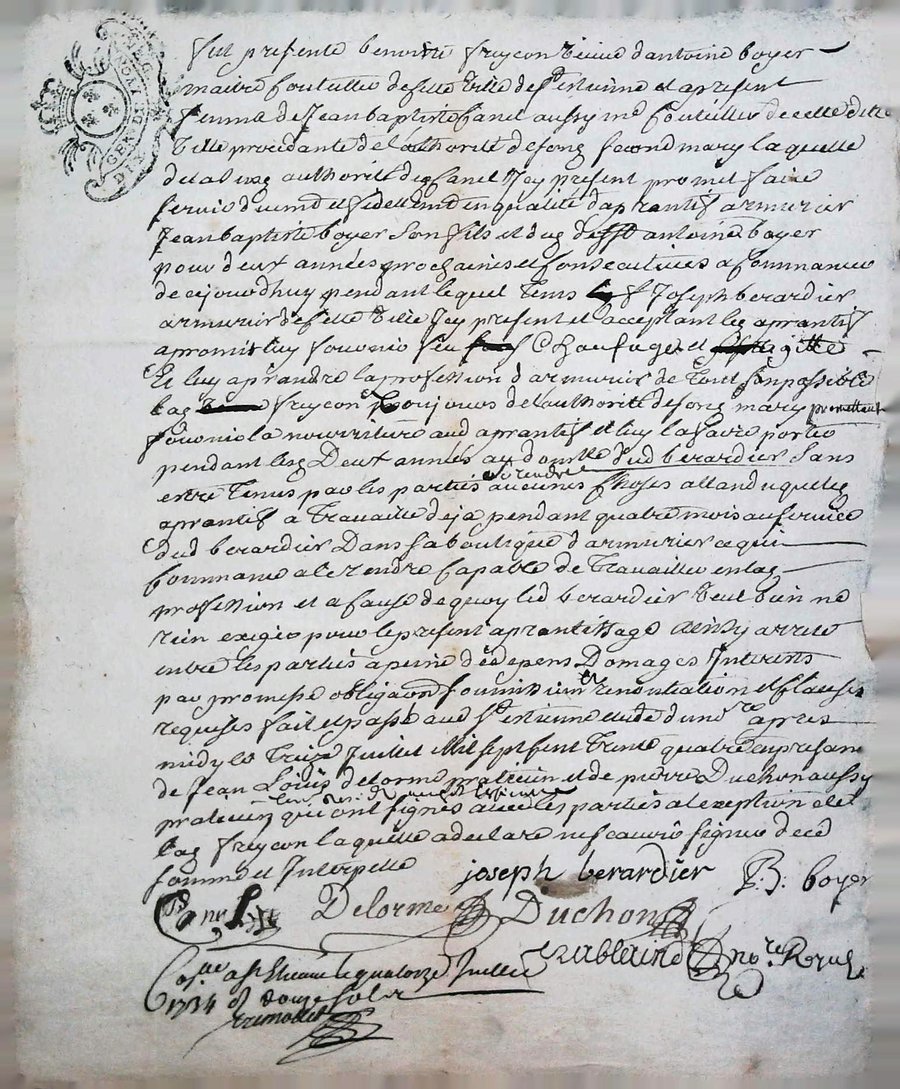 GEN. DE LYON
GER D.
DIX
fut presente benoitte frycon veuve d'antoine boyer
maitre fouteillier de cette ville de st estienne et apresent
femme de Jean baptiste Canel aussy me fouteillier de cette dite
ville procedante de l'authorité de son second mary laquelle
de lad. authorité dud Canel Icy present promet faire
servir duemt et fidellemt en qualité d'aprantif armurier
Jean baptiste boyer son fils et dud defft antoine boyer
pour deux années prochaines et consecutives a commancer
de cejourdhuy pendant lequel tems sr Joseph berardier
armurier de cette ville Icy present et acceptant led aprantif
a promis luy fournir feu Chaufage et gitte
Et luy aprandre la profession d'armurier de tout son possible
lad frycon toujours de l'authorité de son mary promettant
fournir la nourriture aud aprantif et luy la faire porter
pendant les Deux années au domlle dud berardier sans
se rendre
entre tenus par les parties aucunes choses attandu que led
aprantif a travaillé deja pendant quatre mois au service
dud berardier Dans sa boutique d'armurier ce qui
commance a le rendre Capable de travailler en lad
profession et a cause de quoy led berardier veut bien ne
rien exiger pour le present aprantissage ainsy arreté
entre les parties a peine de depens Domages Interets
par promesse obligaon soumission renontiation et clauses
requises fait et passé aud st estienne etude dud nore apres
midy le treize Juillet Mil sept cent trente quatre en presance
de Jean Louis delorme praticien et de pierre Duchon aussy
praticien qui ont signés avec les parties a l'exception de
lad frycon laquelle a declaré ne scavoir signer de ce
sommé et Interpellé
joseph berardier J. B. boyer
Delorme Duchon
nore Royal
a st Estienne le quatorze Juillet
1734 douze sols